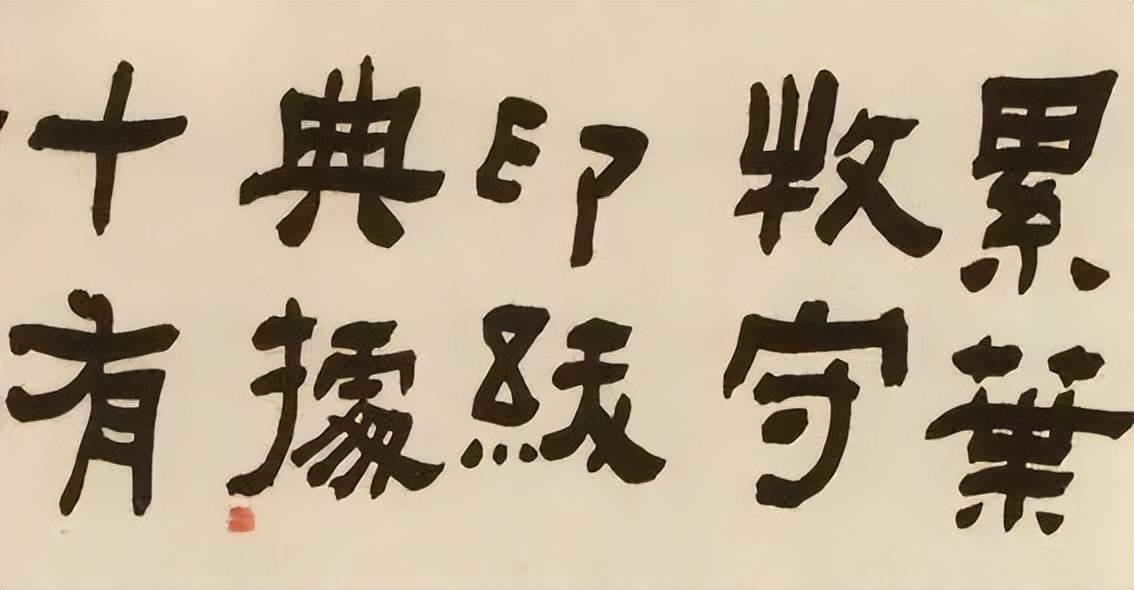 累葉
牧守
印紱
典據
十有